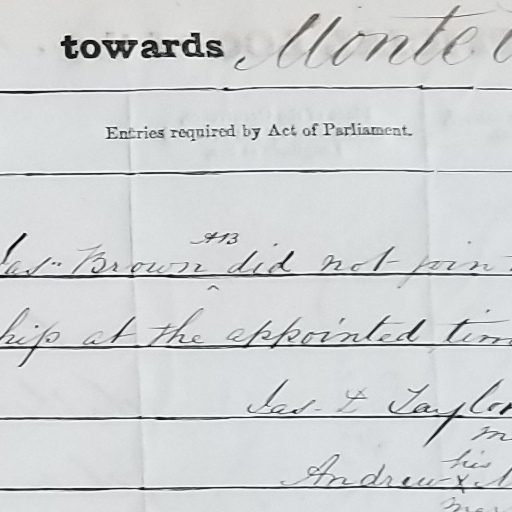 towards Monte
Entries required by Act of Parliament.
AB
Jas. Brown ^ did not join
hip at the appointed tim
Jas. L Taylor
m
his
Andrew x M
mar